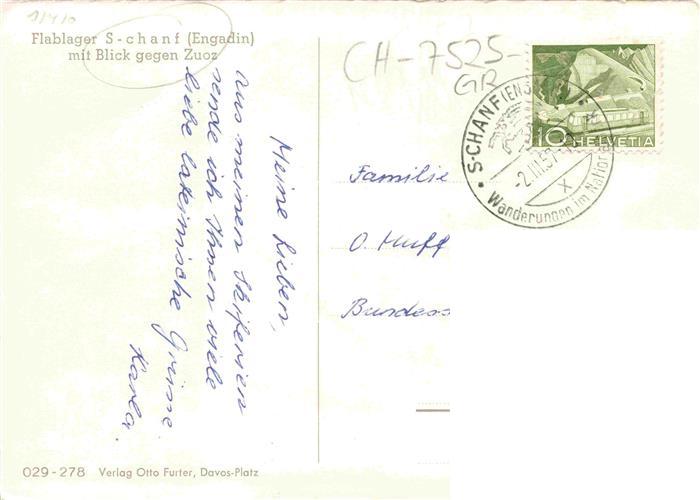 Flablager S-chanf (Engadin)
mit Blick gegen Zuoz
Meine Lieben,
aus meinen Skiferien
sende ich Ihnen viele
liebe lateinische Grüsse.
Karla.
CH-7525-
GR
10 HELVETIA
S-CHANF (EN
-2.III.57
X
Wanderungen im Nation
Familie
O. Huff
Bundess
029-278 Verlag Otto Furter, Davos-Platz